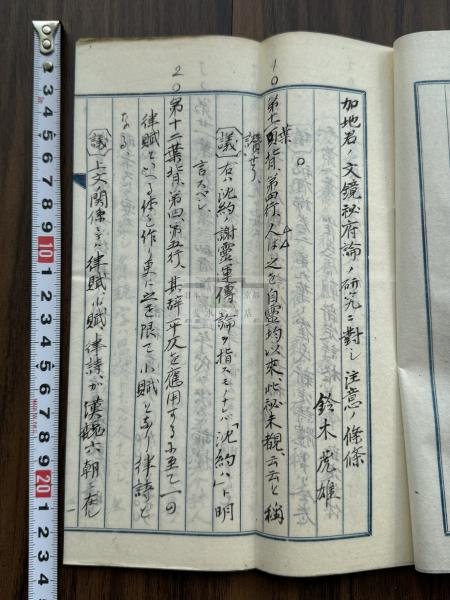 加地君ノ文鏡秘府論ノ研究ニ對シ注意ノ條條
鈴木虎雄
1○第七葉背、第四行、人は之を自靈均以來、此秘未覩、云云と稱
讚せり、
(議)右ハ沈約ノ謝靈運傳論ヲ指スモノナレバ「沈約ハ」ト明
言スベシ
2○第十二葉背、第四、第五行、其辞平仄を應用するに至て一の
律賦といふ体を作り更に之を限て小賦となり律詩と
なる
(議)上文ノ關係
律賦、小賦、律詩、が漢魏六朝ニ在